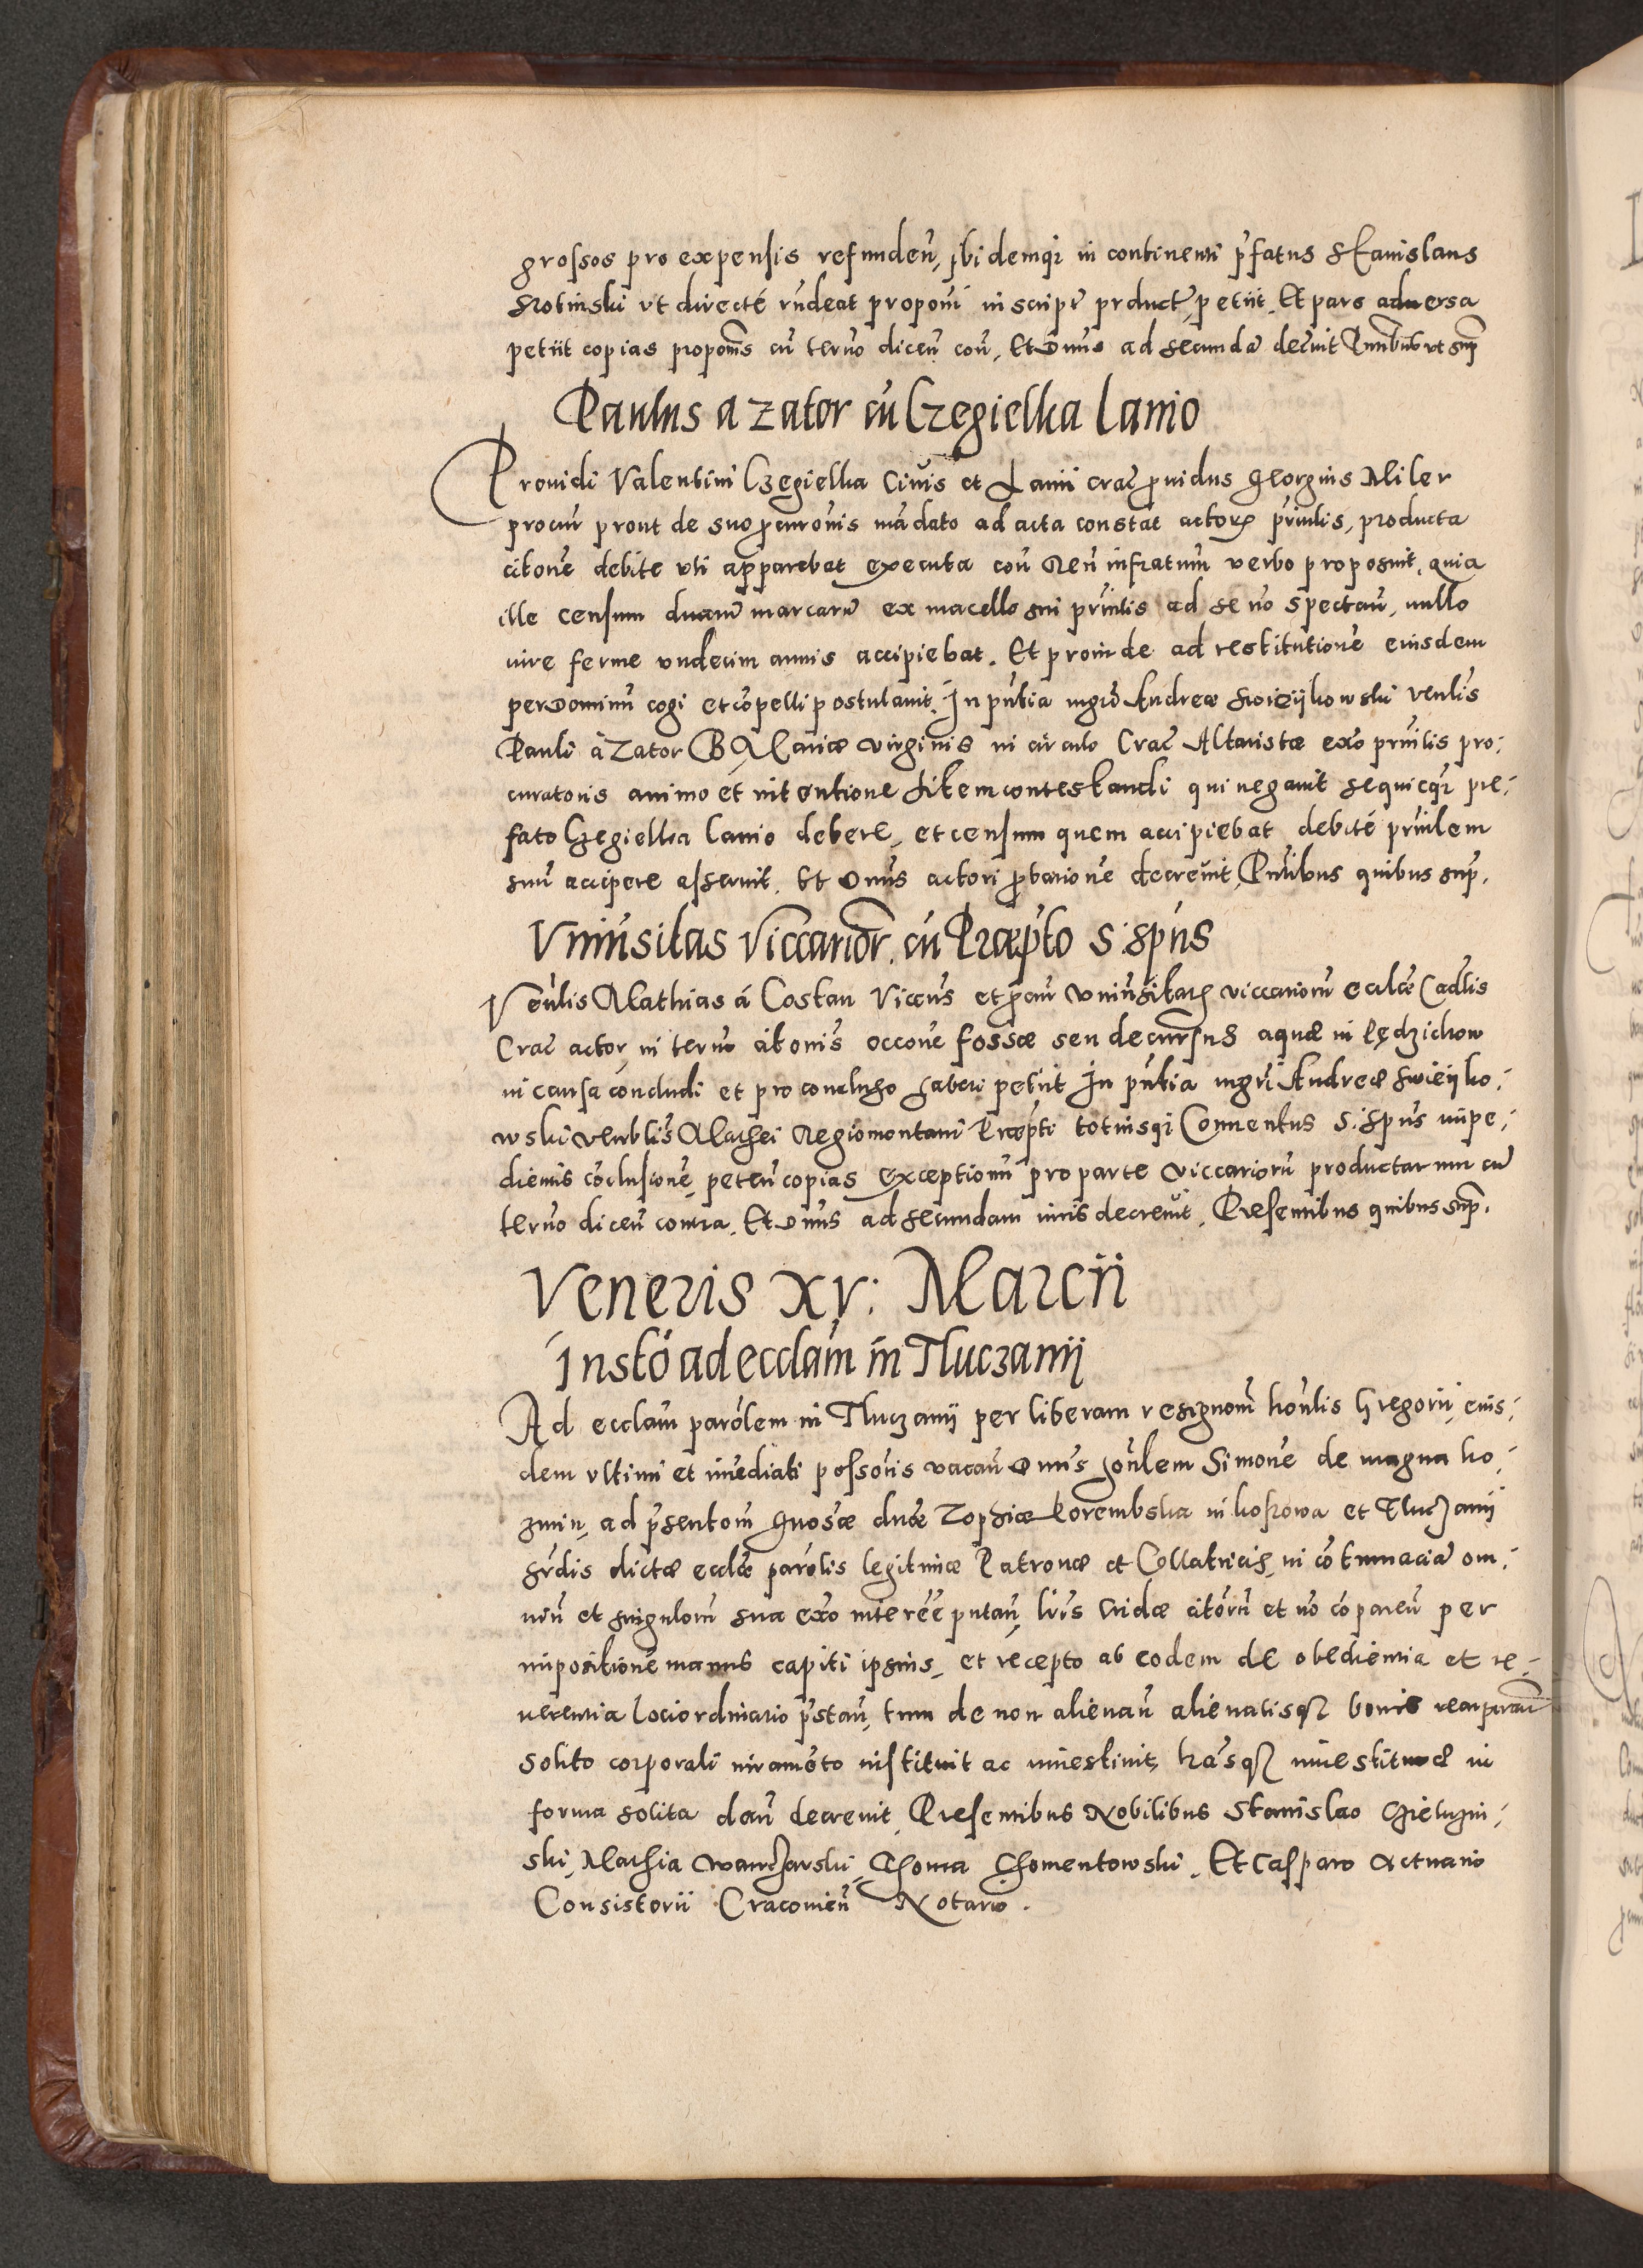 grossos pro expensis refunden̄, Ibidemqȝ in continenti p̄fatus Stanislaus
Rotinski vt directé rn̄deat proponi in scripē product̄, petiit. Et pars aduersa
petiit copias propon̄is cū terno dicen̄ con̄, Et Dn̄us ad secundā decreuit Pn̄tibus vt sup̄
Paulus a Zator cū Czegielka Lanio
Prouidi Valentini Czegielka Ciuis et Lanii crac̄ prouidus Georgius Miler
procur̄ prout de suo procur̄onis mādato ad acta constat actor, principalis, producta
citone debite vti apparebat executa con̄ Reū infratum verbo proposuit, quia
ille censum duarū marcarū ex macello sui prn̄lis ad se nō spectan̄, nullo
iure ferme vndecim annis accipiebat. Et proinde ad restitutionē eiusdem
per Dominū cogi et cōpelli postulauit. In pn̄tia mgrī Andreæ Swieijkowski venlīs
Pauli à Zator B. Mariæ virginis in circulo Crac̄ Altaristæ exo prn̄lis pro:
curatoris animo et intentione litem contestandi qui negauit se quicqȝ pre:
fato Czegielka Lanio debere, et censum quem accipiebat debité prn̄lem
suū accipere asseruit. Et Dn̄us actori probationē decreuit, Pn̄tibus quibus sup̄.
Vniūsitas Viccarior̄. cū Præpto S: Spūs
Venlīs Mathias á Costan Viccūs et procur̄ Vniūsitatis viccariorū ecclæ Cadlīs
Crac̄ actor, in terno citonis occōne fossæ seu decursus aquæ in Lędzichow
in causa concludi et pro concluso haberi petiit In pn̄tia mgrī Andreæ Swieijko:
wski venblīs Mathei Regiomontani Præpti totiusqȝ Conuentus S. Spūs impe:
dientis cōclusionē, peten̄ copias exceptionū pro parte viccariorū productarum cū
terno dicen̄ contra. Et Dn̄us ad secundam iuris decreuit. Presentibus quibus sup̄.
Veneris XV: Marcii
Insto ad ecclām in Tluczanij
Ad ecclām parōlem in Tluczanij per liberam resignom̄ hon̄lis Gregorii, eius:
dem vltimi et imediati possōris vacan̄ Dn̄us hon̄lem Simonē de magna ko:
zmin, ad p̄sentom̄ Gnosæ dn̄æ Zophiæ Korembska in koſsowa et Tluczanij
hrdis dictæ ecclæ parōlis legitimæ Patronæ et Collatricis, in cōtumaciā om:
niū et singulor̄ sua exo interēe putan̄, lrīs Cridæ citōrū et nō cōparen̄ per
impositionē manus capiti ipsius, et recepto ab eodem de obedientia et re:
uerentia loci ordinario p̄stan̄, tum de non alienan̄ alienatisqȝ bonis recuperan̄
solito corporali iuramēto instituit ac inuestiuit, lrāsqȝ inuestituræ in
forma solita dan̄ decreuit. Presentibus Nobilibus Stanislao Gieluzni:
ski, Mathia Warzarski, Thoma Chomentowski. Et Casparo Actuario
Consistorii Cracouien̄ Notario.